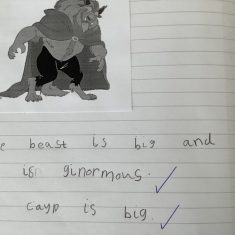 e beast is big and
is ginormous.
is big.